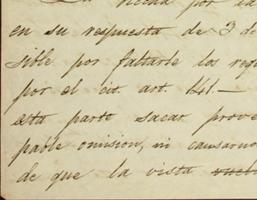 en su respuesta de 3 de
sible por faltarle los req
por el cit. art. 141.—
esta parte sacar prove
pable omision, ni causarno
de que la vista